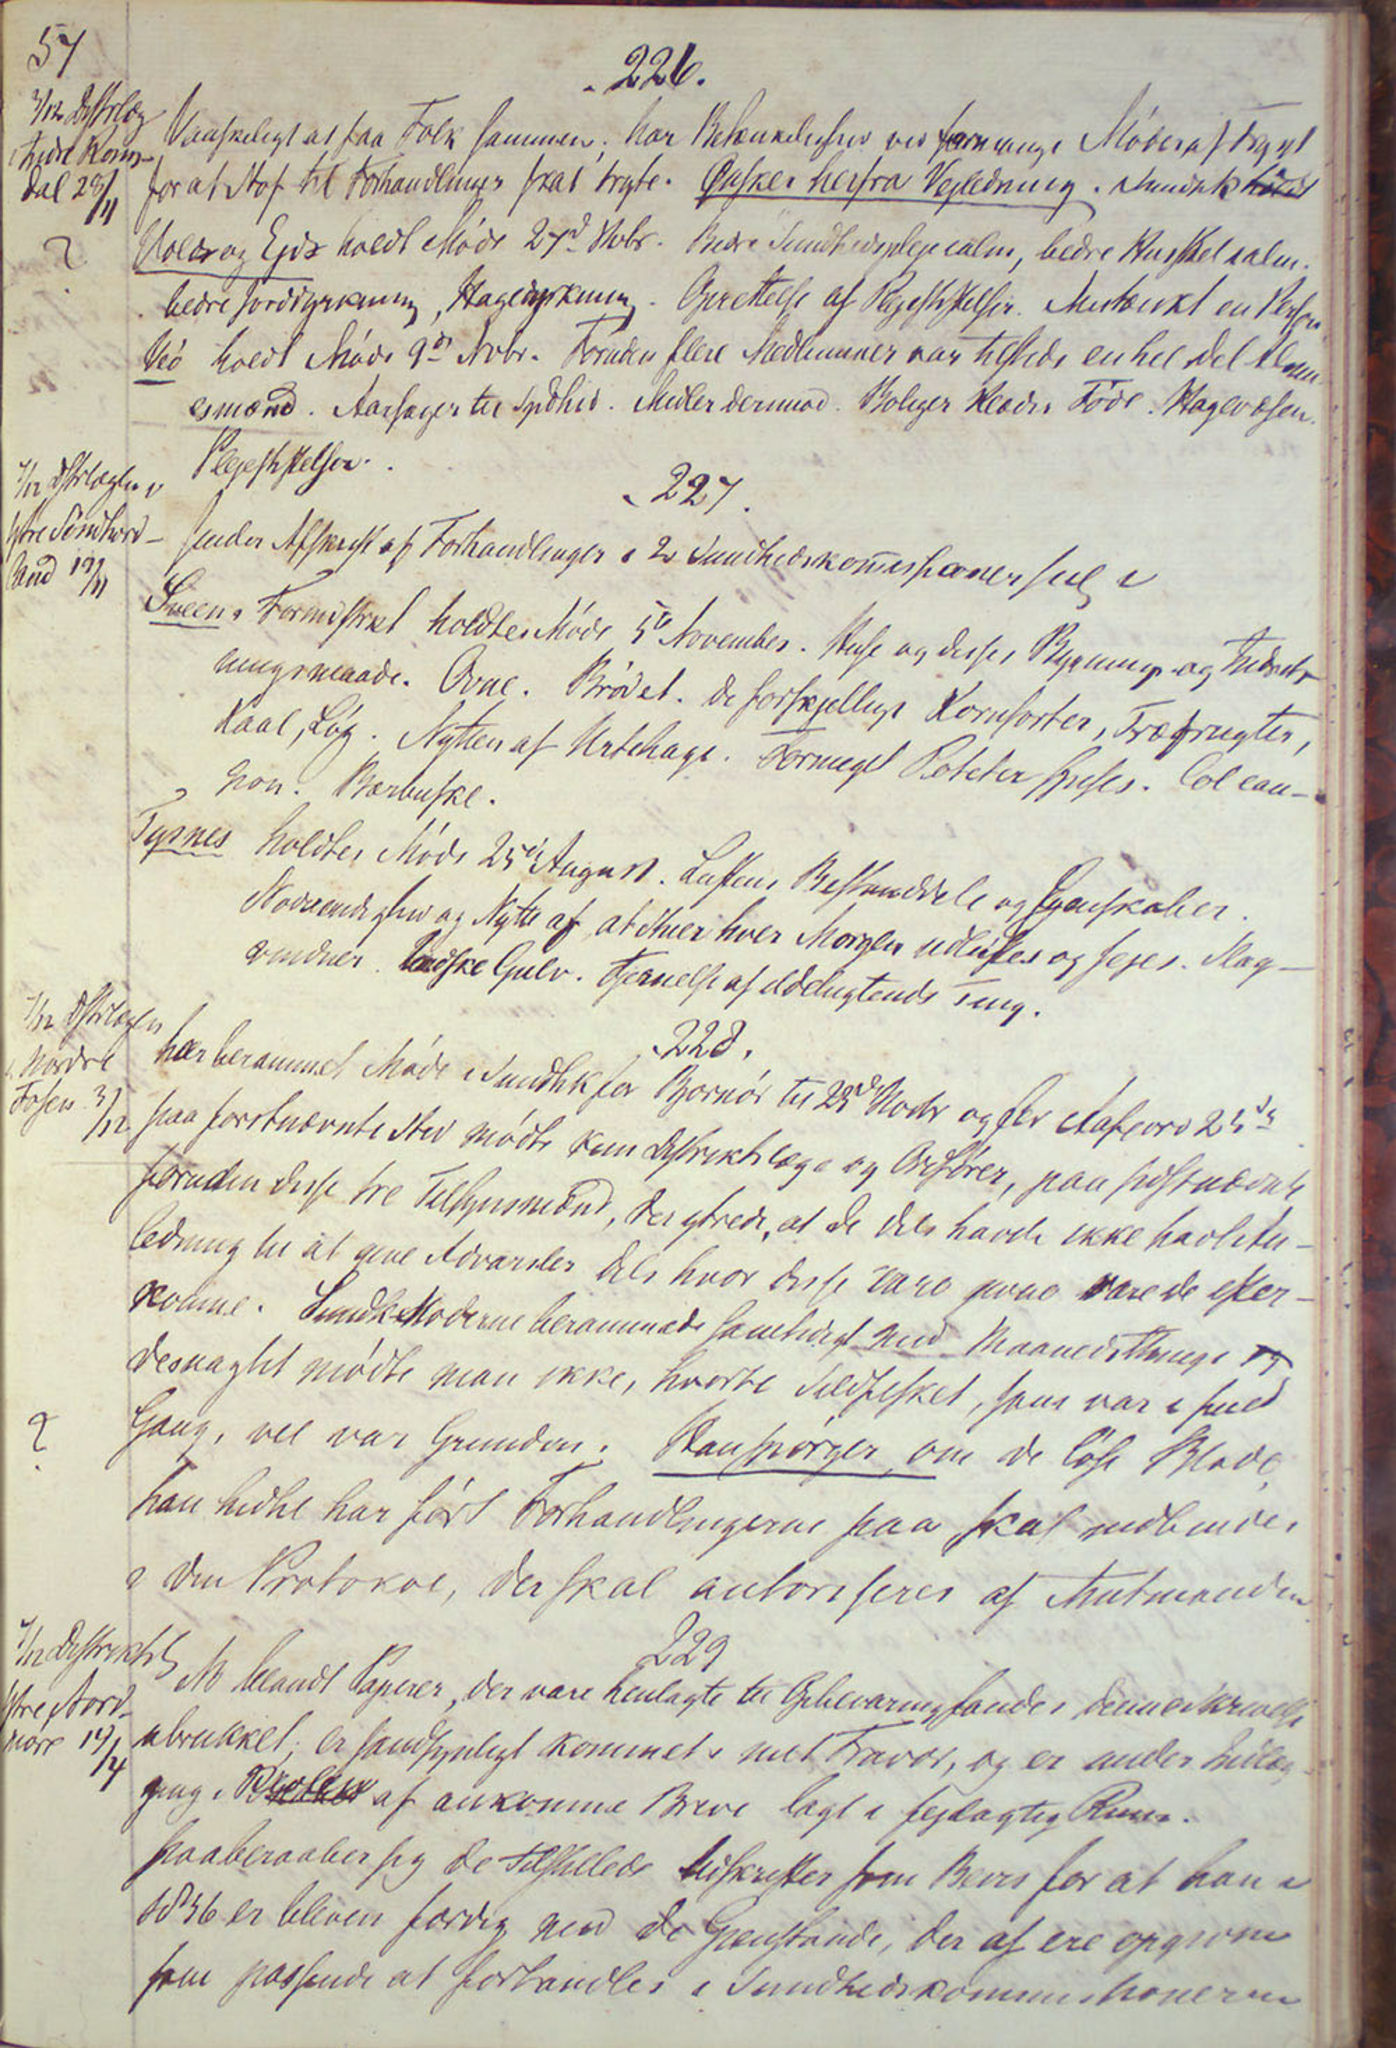 57
226.
3/12 Distrlæg
i Indre Roms-
dal 28/11
Vanskeligt at faa Folk sammen; har Betænkeligheder ved formange Møder af Frygt
for at Stof til Forhandlinger skal tryte. Ønsker herfra Vejledning. Sundhk holdt
?
Volds og Ejds holdt Møde 27d Novbr. Bedre Sundhedspleje i alm, bedre Husstel i alm.
bedre Jorddyrkning, Havedyrkning. Oprettelse af Plejestiftelser. Mistænkt en Person
Veø holdt Møde 9de Novbr. Foruden flere Medlemmer var tilstede en hel Del Alm-
esmænd. Aarsager til Spdhed. Midler derimod. Boliger Klæder Føde. Havevæsen.
Plejestiftelser.
227.
7/12 Distrlægen i
Ytre Søndhord-
land 17/11
sender Afskrift af Forhandlinger i 2 Sundhedskommissioner
Sveen i Formdstrkt holdtes Møde 5te November. Huse og disses Bygnings og Indret-
ningsmaade. Ovne. Brødet. de forskjellige Kornsorter, Træfrugter,
Kaal, Løg. Nytten af Urtehage. Formeget Poteter spises. Col
Bærbuske.
Tysnes holdtes Møde 25de August. Luftens Bestanddele og Egenskaber.
Nødvendighed og Nytte af at Stuer hver Morgen udluftes og fejes. Klap-
vinduer. Vadske Gulv. Fjernelse af ildelugtende Ting.
228.
7/12 Distrlægen
i Nordre
Fosen 3/12
har berammet Møde i Sundhk for Bjørnør til 23de Novbr og for Aafjord 25de
paa førstnævnte Sted mødte kun Distriktslæge og Ordfører, paa sidstnævnte
foruden disse tre Tilsynsmænd, der ytrede, at de dels havde ikke havt An-
ledning til at give Advarsler dels hvor disse vare givne vare de efter-
komne. Sundk Møderne berammede samtidigt med Maanedsthinge og
desuagtet mødte man ikke, hvortil Sildfisket, som var i fuld
?
Gang, vel var Grunden. Han spørger, om de løse Blade
han hidtil har ført Forhandlingerne paa skal indbindes
i den Protokol, der skal autoriseres af Amtmanden
229
7/12 Distriktsl
Ytre Nord-
møre 14/4
At blandt Papirer, der vare henlagte til Opbevaring fandes denne Skrivelse
ubrukket; er sandsynligt kommet i mit Fravær, og er under Indlæg-
ning i af ankomne Breve lagt i fejlagtig Rum.
paaberaaber sig de tilstillede Udskrifter som Bevis for at han i
er bleven færdig med de Gjenstande, der af ere opgivne
som passende at forhandles i Sundhedskommissionerne